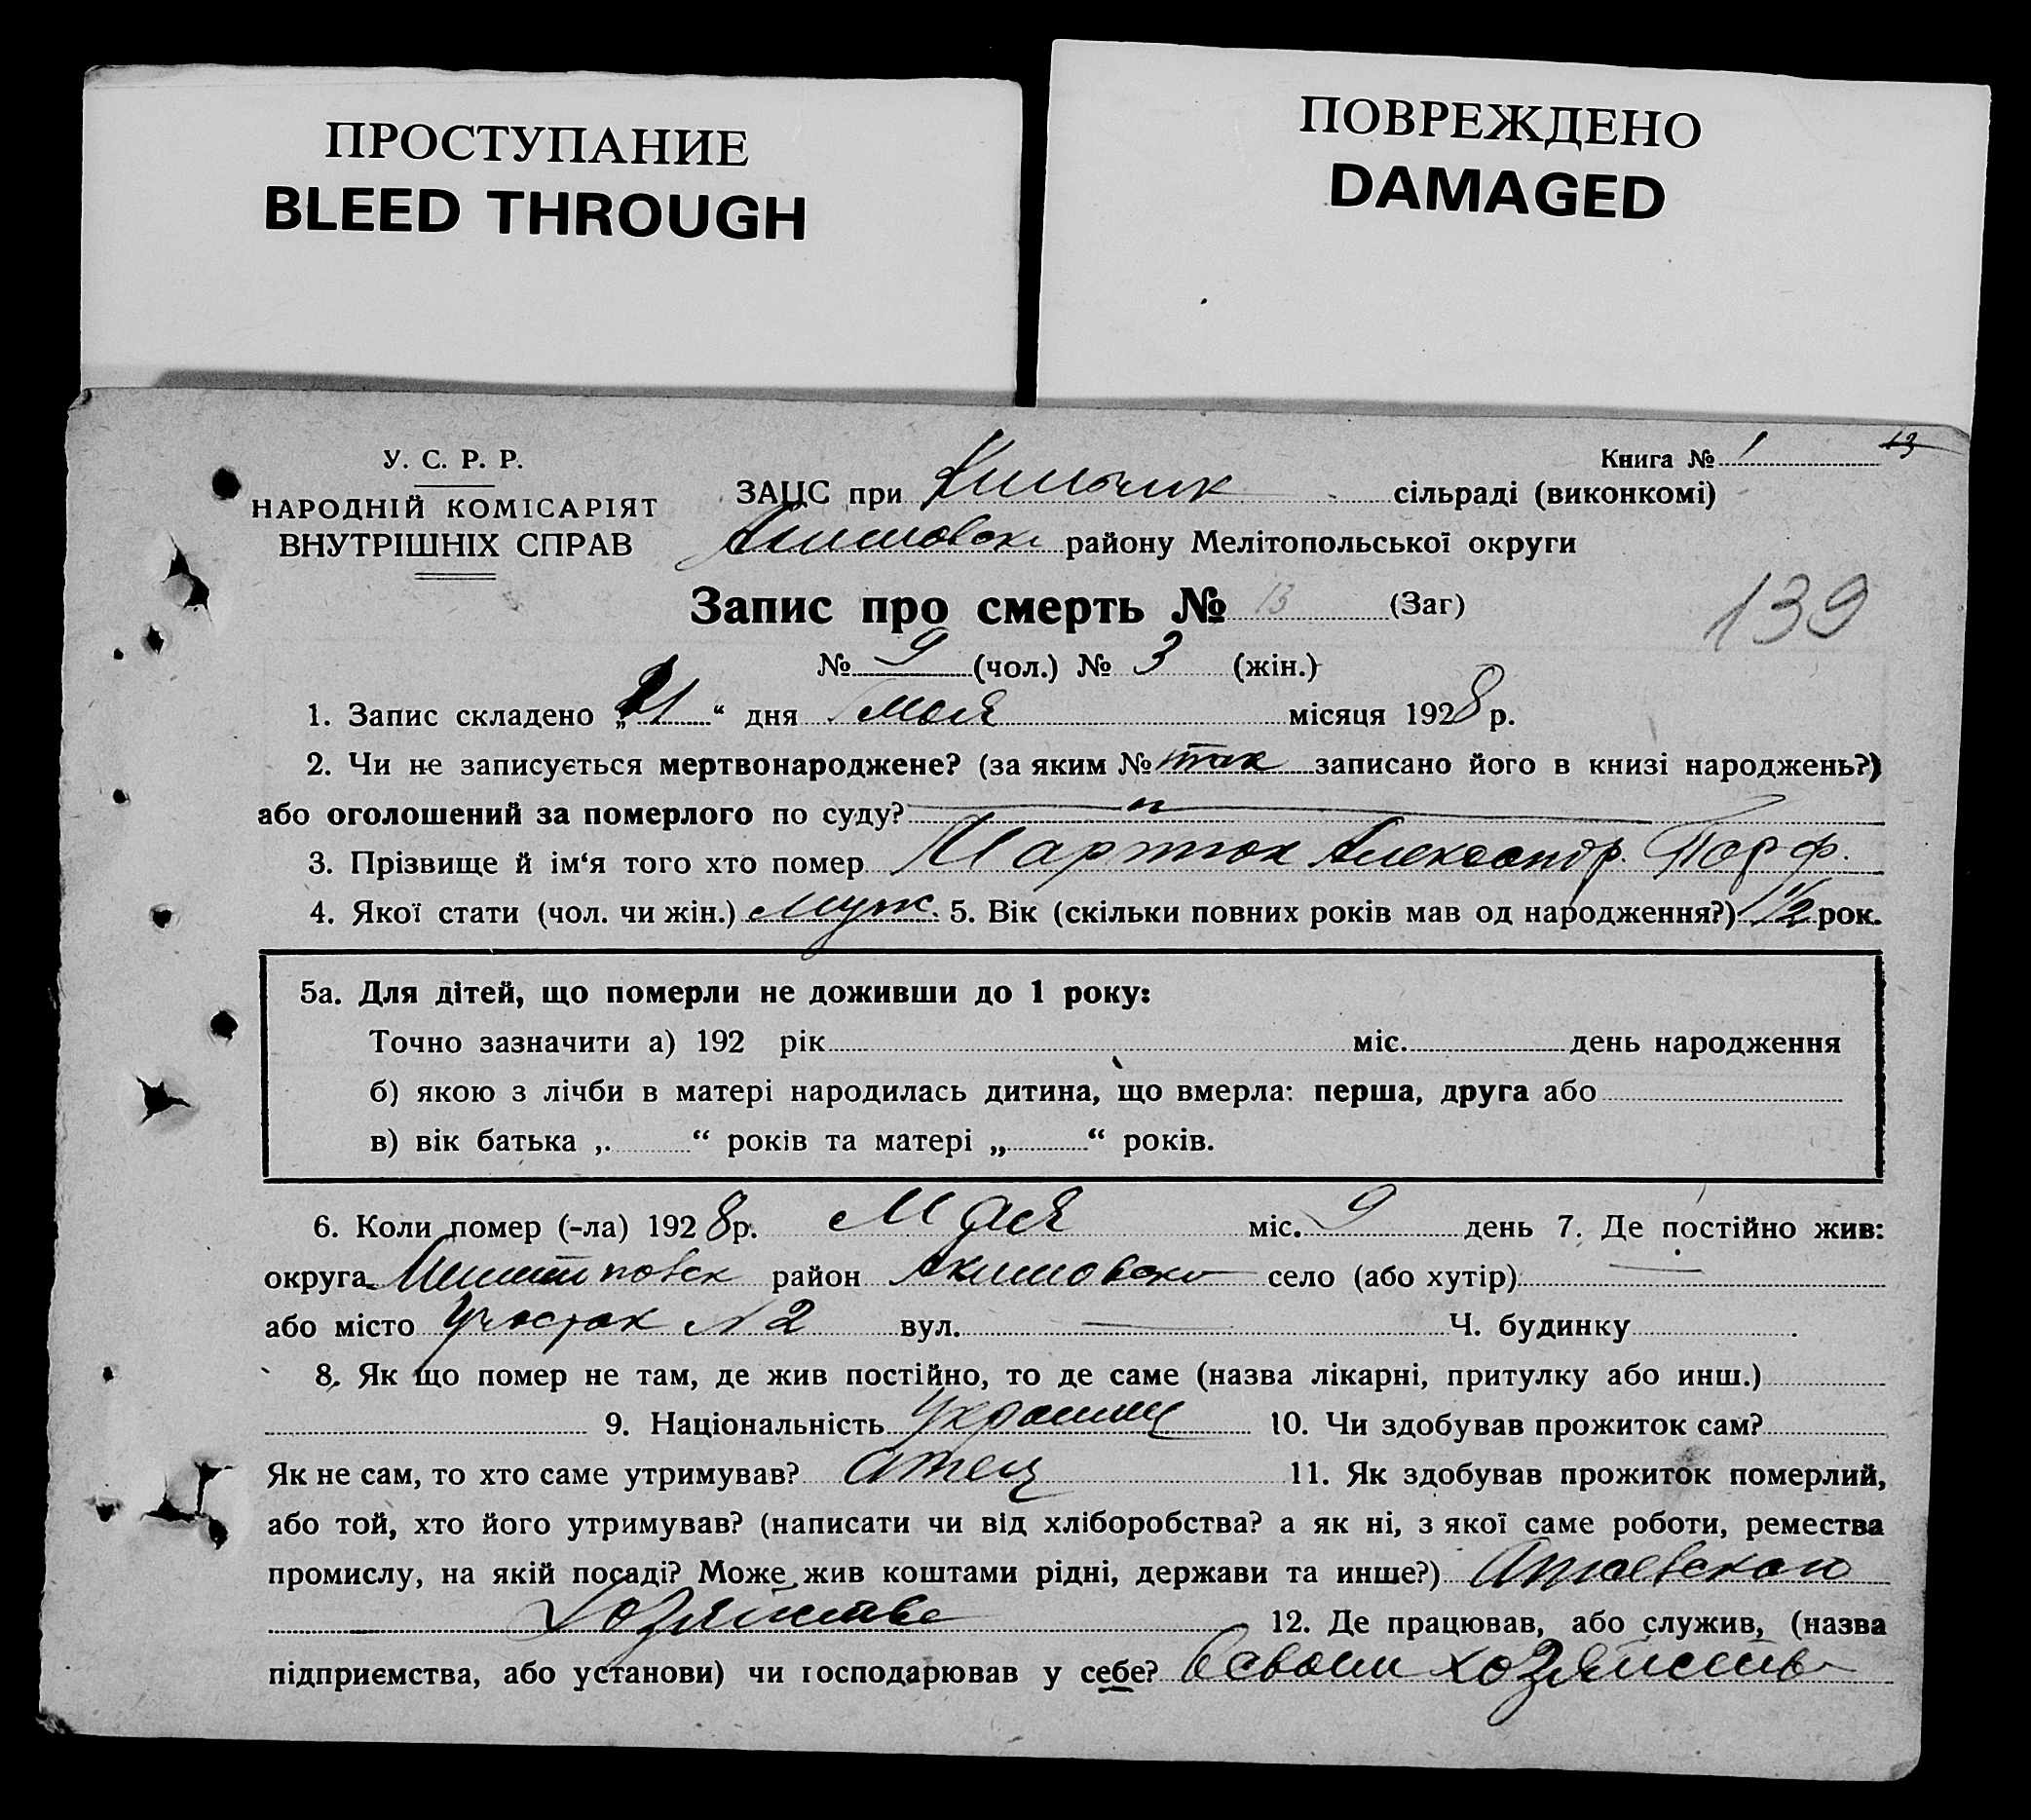 ПРОСТУПАНИЕ
BLEED THROUGH
ПОВРЕЖДЕНО
DAMAGED
Книга № 1 13
У. С. Р. Р.
НАРОДНІЙ КОМІСАРІЯТ
ВНУТРІШНІХ СПРАВ
ЗАЦС при сільраді (виконкомі)
Акимовск району Мелітопольської округи
Запис про смерть № 13 (Заг)
139
№ 9 (чол.) № 3 (жін.)
1. Запис складено „21“ дня мая місяця 1928 р.
2. Чи не записується мертвонароджене? (за яким № так записано його в книзі народжень?)
або оголошений за померлого по суду?
3. Прізвище й ім‘я того хто помер Александр. Порф.
4. Якої стати (чол. чи жін.) муж. 5. Вік (скільки повних років мав од народження?) 1 1/2 рок.
5а. Для дітей, що померли не доживши до 1 року:
Точно зазначити а) 192 рік міс. день народження
б) якою з лічби в матері народилась дитина, що вмерла: перша, друга або
в) вік батька „ “ років та матері „ “ років.
6. Коли помер (-ла) 1928 р. Мая міс. 9 день 7. Де постійно жив:
округа район Акимовско село (або хутір) —
або місто Участок №2 вул. — Ч. будинку .
8. Як що помер не там, де жив постійно, то де саме (назва лікарні, притулку або инш.)
9. Національність Украинец 10. Чи здобував прожиток сам?
Як не сам, то хто саме утримував? отец 11. Як здобував прожиток померлий,
або той, хто його утримував? (написати чи від хліборобства? а як ні, з якої саме роботи, ремества
промислу, на якій посаді? Може жив коштами рідні, держави та инше?)
хозяйства 12. Де працював, або служив, (назва
підприємства, або установи) чи господарював у себе? В своем хозяйстве